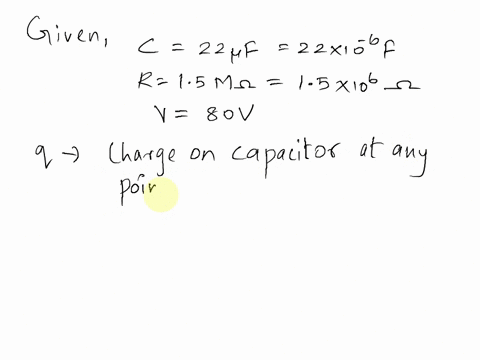 Given,
C = 22μF = 22×10⁻⁶F
R = 1.5 MΩ = 1.5×10⁶ Ω
V = 80V
q → Charge on capacitor at any
poir